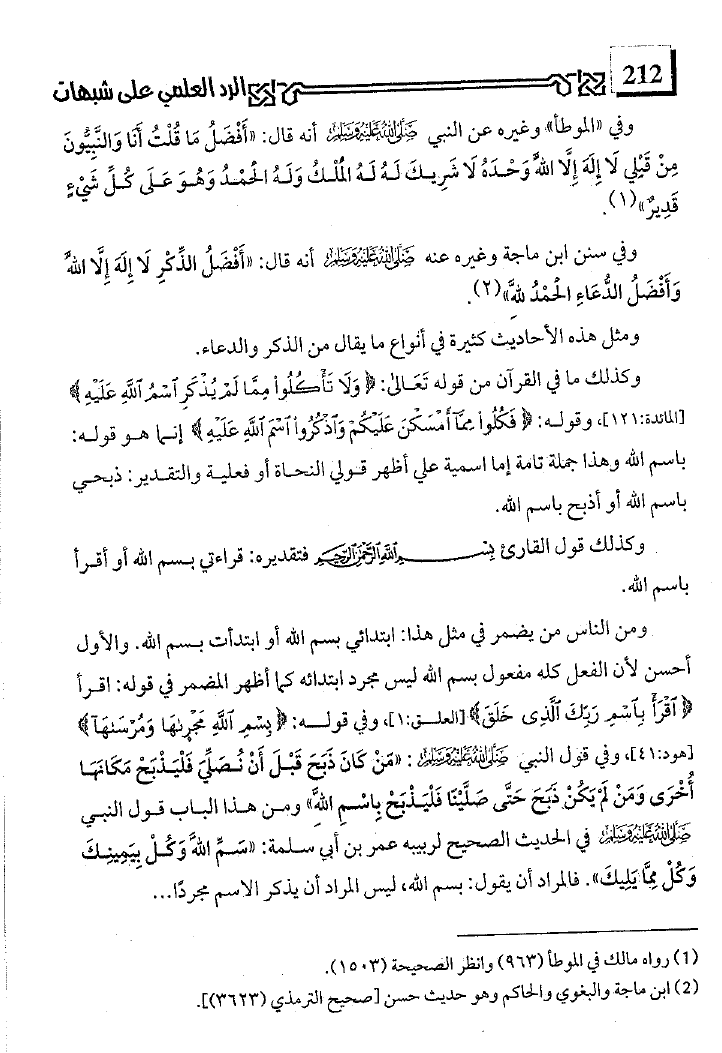 212
الرد العلمي على شبهات
وفي «الموطأ» وغيره عن النبي صَلَّى اللَّهُ عَلَيْهِ وَسَلَّمَ أنه قال: «أَفْضَلُ مَا قُلْتُ أَنَا وَالنَّبِيُّونَ
مِنْ قَبْلِي لَا إِلَهَ إِلَّا اللهُ وَحْدَهُ لَا شَرِيكَ لَهُ لَهُ الْمُلْكُ وَلَهُ الْحَمْدُ وَهُوَ عَلَى كُلِّ شَيْءٍ
قَدِيرٌ»(١).
وفي سنن ابن ماجة وغيره عنه صَلَّى اللَّهُ عَلَيْهِ وَسَلَّمَ أنه قال: «أَفْضَلُ الذِّكْرِ لَا إِلَهَ إِلَّا اللهُ
وَأَفْضَلُ الدُّعَاءِ الْحَمْدُ للهِ»(٢).
ومثل هذه الأحاديث كثيرة في أنواع ما يقال من الذكر والدعاء.
وكذلك ما في القرآن من قوله تَعَالَى: ﴿وَلَا تَأْكُلُوا مِمَّا لَمْ يُذْكَرِ اسْمُ اللَّهِ عَلَيْهِ﴾
[المائدة:١٢١]، وقوله: ﴿فَكُلُوا مِمَّا أَمْسَكْنَ عَلَيْكُمْ وَاذْكُرُوا اسْمَ اللَّهِ عَلَيْهِ﴾ إنما هو قوله:
باسم الله وهذا جملة تامة إما اسمية علي أظهر قولي النحاة أو فعلية والتقدير: ذبحي
باسم الله أو أذبح باسم الله.
وكذلك قول القارئ بِسْمِ اللَّهِ الرَّحْمَنِ الرَّحِيمِ فتقديره: قراءتي بسم الله أو أقرأ
باسم الله.
ومن الناس من يضمر في مثل هذا: ابتدائي بسم الله أو ابتدأت بسم الله. والأول
أحسن لأن الفعل كله مفعول بسم الله ليس مجرد ابتدائه كما أظهر المضمر في قوله: اقرأ
﴿اقْرَأْ بِاسْمِ رَبِّكَ الَّذِي خَلَقَ﴾[العلق:١]، وفي قوله: ﴿بِسْمِ اللَّهِ مَجْرَاهَا وَمُرْسَاهَا﴾
[هود:٤١]، وفي قول النبي صَلَّى اللَّهُ عَلَيْهِ وَسَلَّمَ: «مَنْ كَانَ ذَبَحَ قَبْلَ أَنْ نُصَلِّيَ فَلْيَذْبَحْ مَكَانَهَا
أُخْرَى وَمَنْ لَمْ يَكُنْ ذَبَحَ حَتَّى صَلَّيْنَا فَلْيَذْبَحْ بِاسْمِ اللهِ» ومن هذا الباب قول النبي
صَلَّى اللَّهُ عَلَيْهِ وَسَلَّمَ في الحديث الصحيح لربيبه عمر بن أبي سلمة: «سَمِّ اللهَ وَكُلْ بِيَمِينِكَ
وَكُلْ مِمَّا يَلِيكَ». فالمراد أن يقول: بسم الله، ليس المراد أن يذكر الاسم مجردًا...
(1) رواه مالك في الموطأ (٩٦٣) وانظر الصحيحة (١٥٠٣).
(2) ابن ماجة والبغوي والحاكم وهو حديث حسن [صحيح الترمذي (٣٦٢٣)].